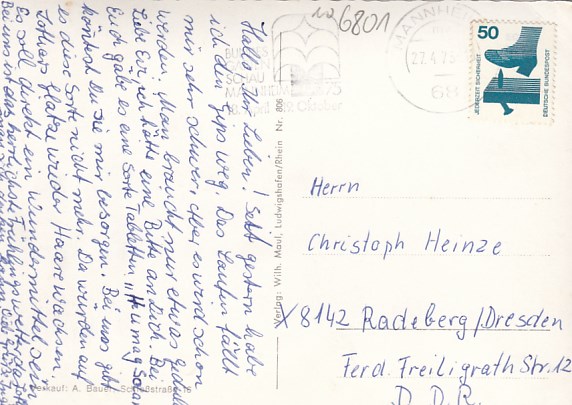 Hallo Ihr Lieben! Seit gestern habe
ich den Gips weg. Das Laufen fällt
mir sehr schwer, aber es wird schon
werden. Man braucht nur etwas Geduld
Lebe Eich hätte eine Bitte an Dich. Bei
Euch gäbe es eine Sorte Tabletten "Humagsolan
könntest Du sie mir besorgen. Bei uns gibt
es diese Sorte nicht mehr. Da würden auf
Lothars Glatze wieder Haare wachsen.
Es soll direkt ein Wundermittel sein
Bei uns ist das herrlichste Frühlingswetter
Verkauf: A. Bauer, Schloßstraße 16
Verlag: Wilh. Maul, Ludwigshafen/Rhein Nr. 806
6801
BUNDES
GARTEN
SCHAU
MANNHEIM 1975
18. April - 19. Oktober
MANNHEIM
22.4.75
68
50
JEDERZEIT SICHERHEIT
DEUTSCHE BUNDESPOST
Herrn
Christoph Heinze
X 8142 Radeberg/Dresden
Ferd. Freiligrath Str. 12
D.D.R.